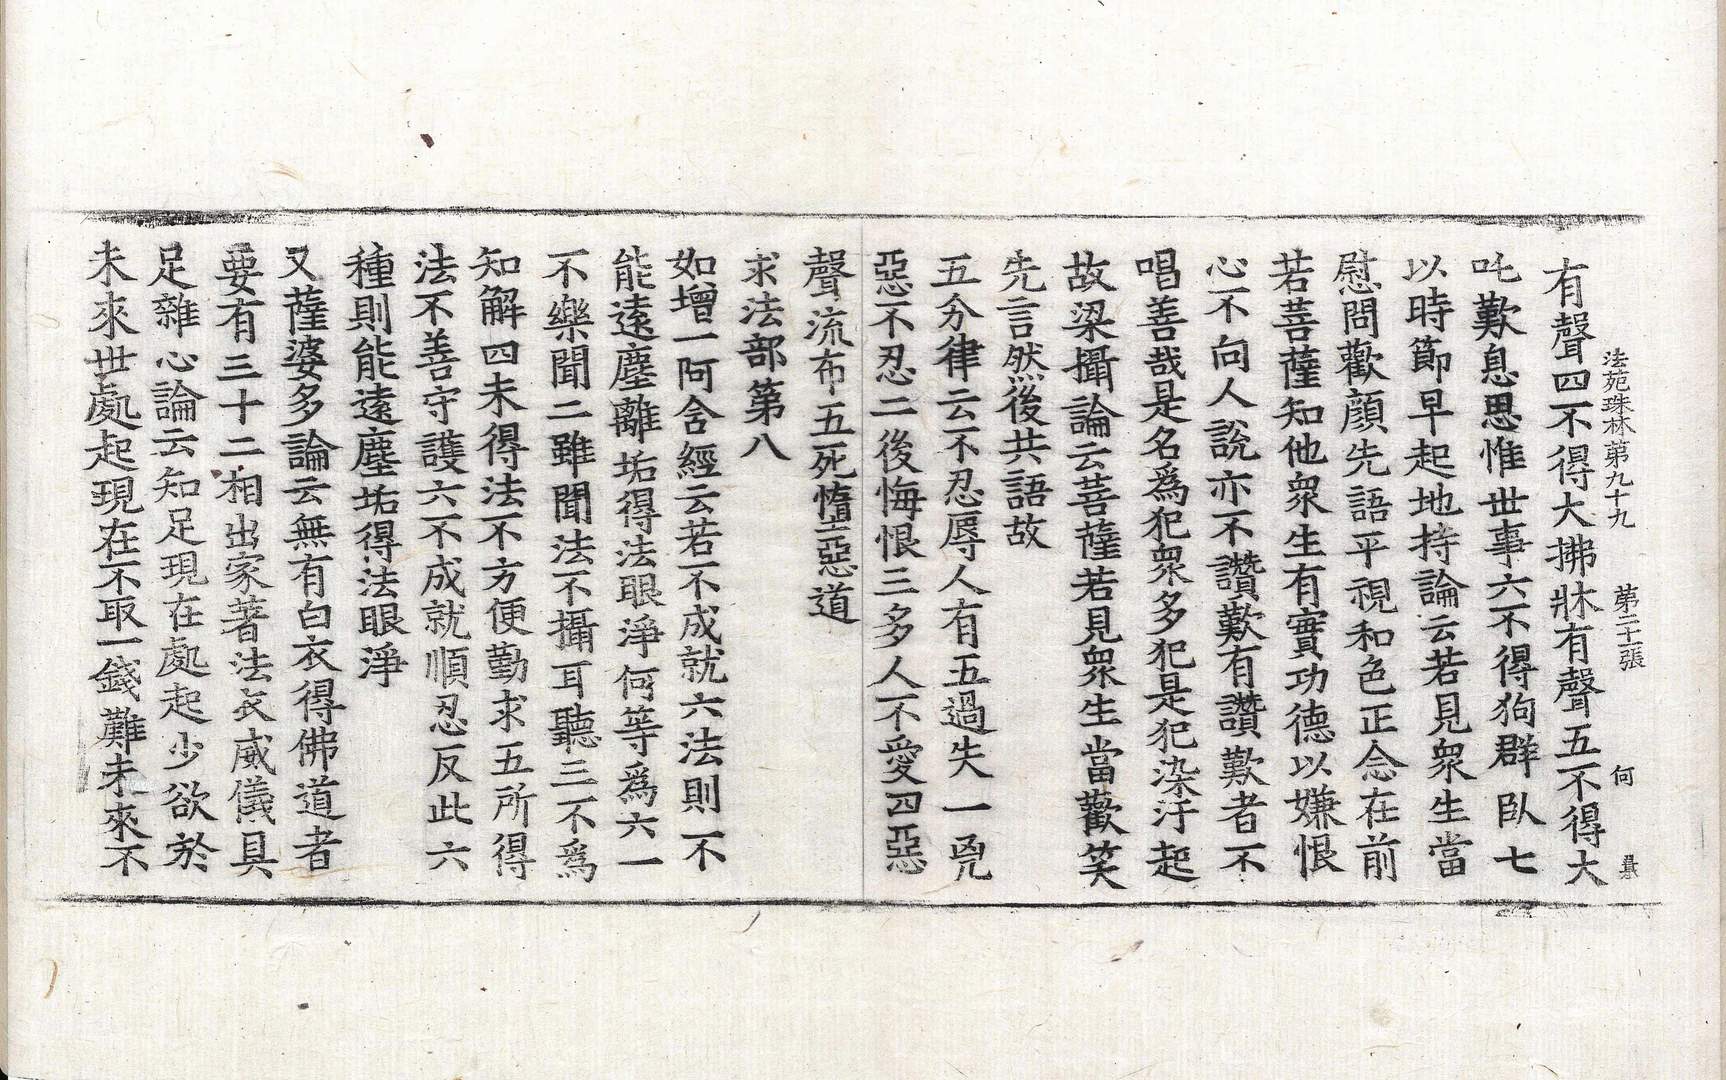 有聲四不得大拂牀有聲五不得大
法苑珠林第九十九 第二十張 何
吒歎息思惟世事六不得狗群臥七
以時節早起地持論云若見衆生當
慰問歡顔先語平視和色正念在前
若菩薩知他衆生有實功德以嫌恨
心不向人說亦不讚歎有讚歎者不
唱善哉是名爲犯衆多犯是犯染汙起
故梁攝論云菩薩若見衆生當歡笑
先言然後共語故
五分律云不忍辱人有五過失一兇
惡不忍二後悔恨三多人不愛四惡
聲流布五死墮惡道
求法部第八
如增一阿含經云若不成就六法則不
能遠塵離垢得法眼淨何等爲六一
不樂聞二雖聞法不攝耳聽三不爲
知解四未得法不方便勤求五所得
法不善守護六不成就順忍反此六
種則能遠塵垢得法眼淨
又薩婆多論云無有白衣得佛道者
要有三十二相出家著法衣威儀具
足雜心論云知足現在處起少欲於
未來世處起現在不取一錢難未來不